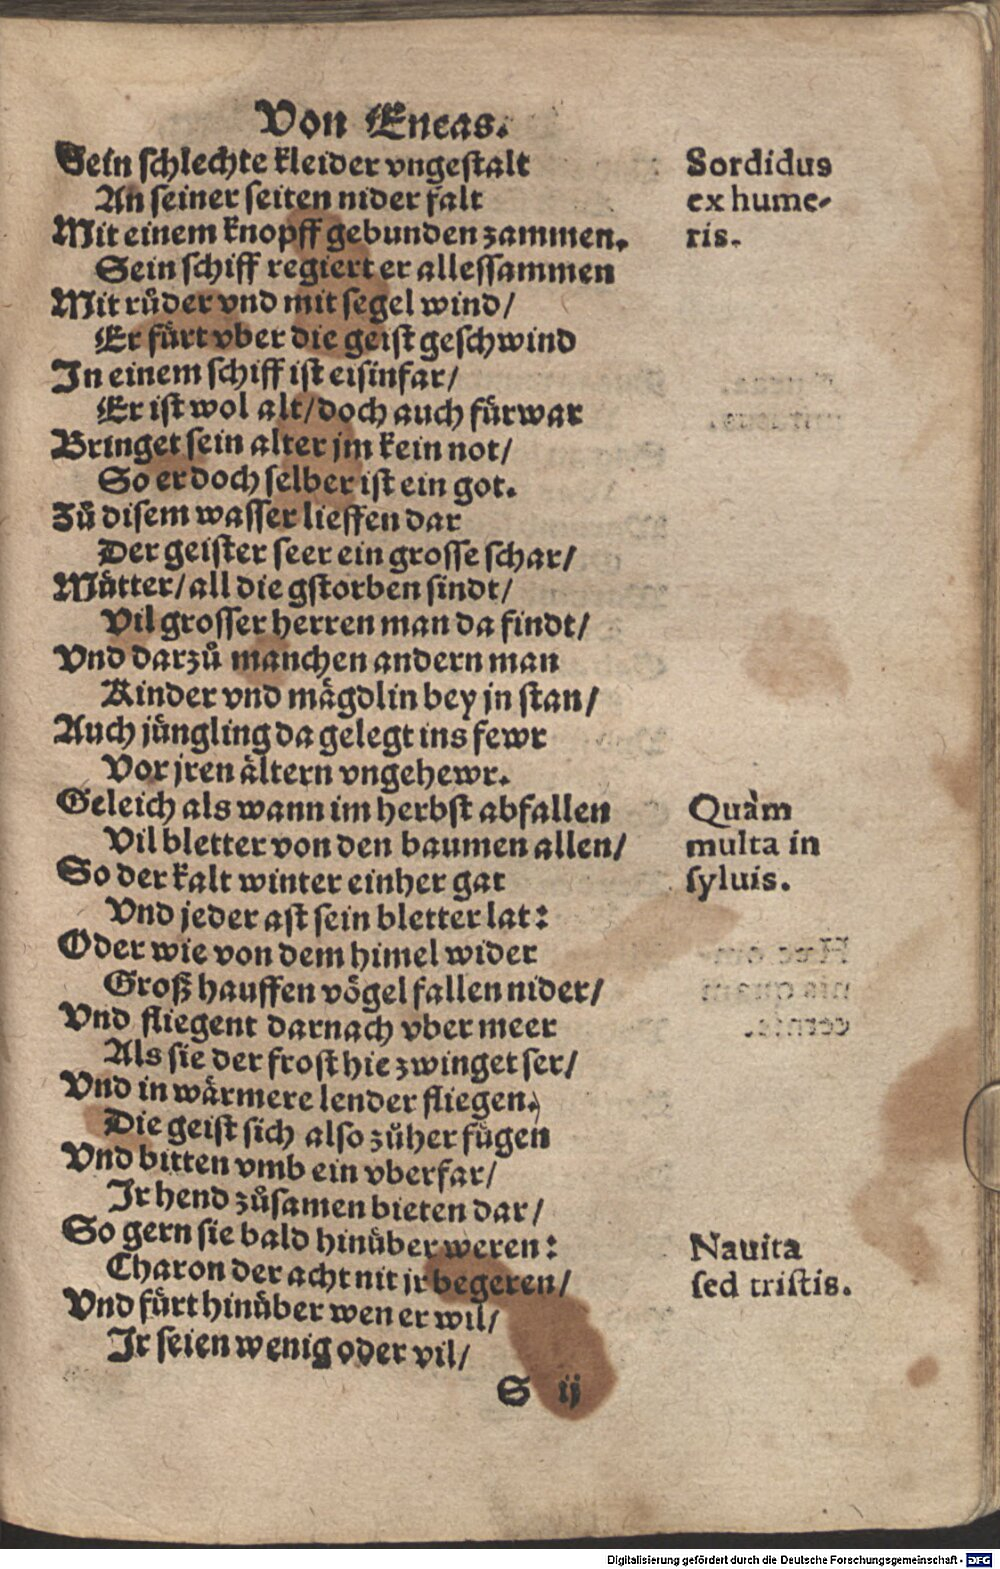 Von Eneas.
Sein schlechte kleider vngestalt
An seiner seiten nider falt
Mit einem knopff gebunden zammen.
Sein schiff regiert er allessammen
Mit růder vnd mit segel wind/
Er fürt vber die geist geschwind
In einem schiff ist eisinfar/
Er ist wol alt/doch auch fürwar
Bringet sein alter jm kein not/
So er doch selber ist ein got.
Zů disem wasser lieffen dar
Der geister seer ein grosse schar/
Můtter/all die gstorben sindt/
Vil grosser herren man da findt/
Vnd darzů manchen andern man
Kinder vnd mägdlin bey jn stan/
Auch jüngling da gelegt ins fewr
Vor jren ältern vngehewr.
Geleich als wann im herbst abfallen
Vil bletter von den baumen allen/
So der kalt winter einher gat
Vnd jeder ast sein bletter lat:
Oder wie von dem himel wider
Groß hauffen vögel fallen nider/
Vnd fliegent darnach vber meer
Als sie der frost hie zwinget ser/
Vnd in wärmere lender fliegen.
Die geist sich also zůher fügen
Vnd bitten vmb ein vberfar/
Ir hend zůsamen bieten dar/
So gern sie bald hinüber weren:
Charon der acht nit jr begeren/
Vnd fürt hinüber wen er wil/
Ir seien wenig oder vil/
S ij
Sordidus
ex hume-
ris.
Quàm
multa in
syluis.
Nauita
sed tristis.
Digitalisierung gefördert durch die Deutsche Forschungsgemeinschaft - DFG